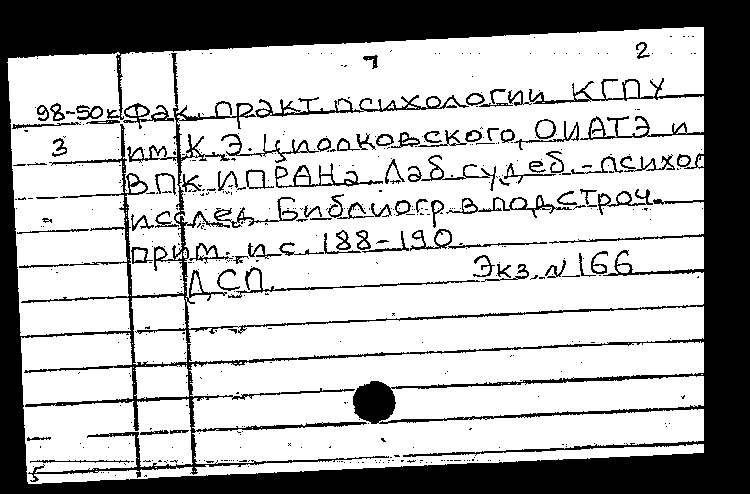 7 2
98-50к Фак. практ. психологии КГПУ
3 им. К.Э. Циолковского, ОИАТЭ и
ВПК ИПРАНа. Лаб. судеб.-психол
исслед. Библиогр. в подстроч.
прим. и с. 188-190.
ДСП. Экз. № 166
5